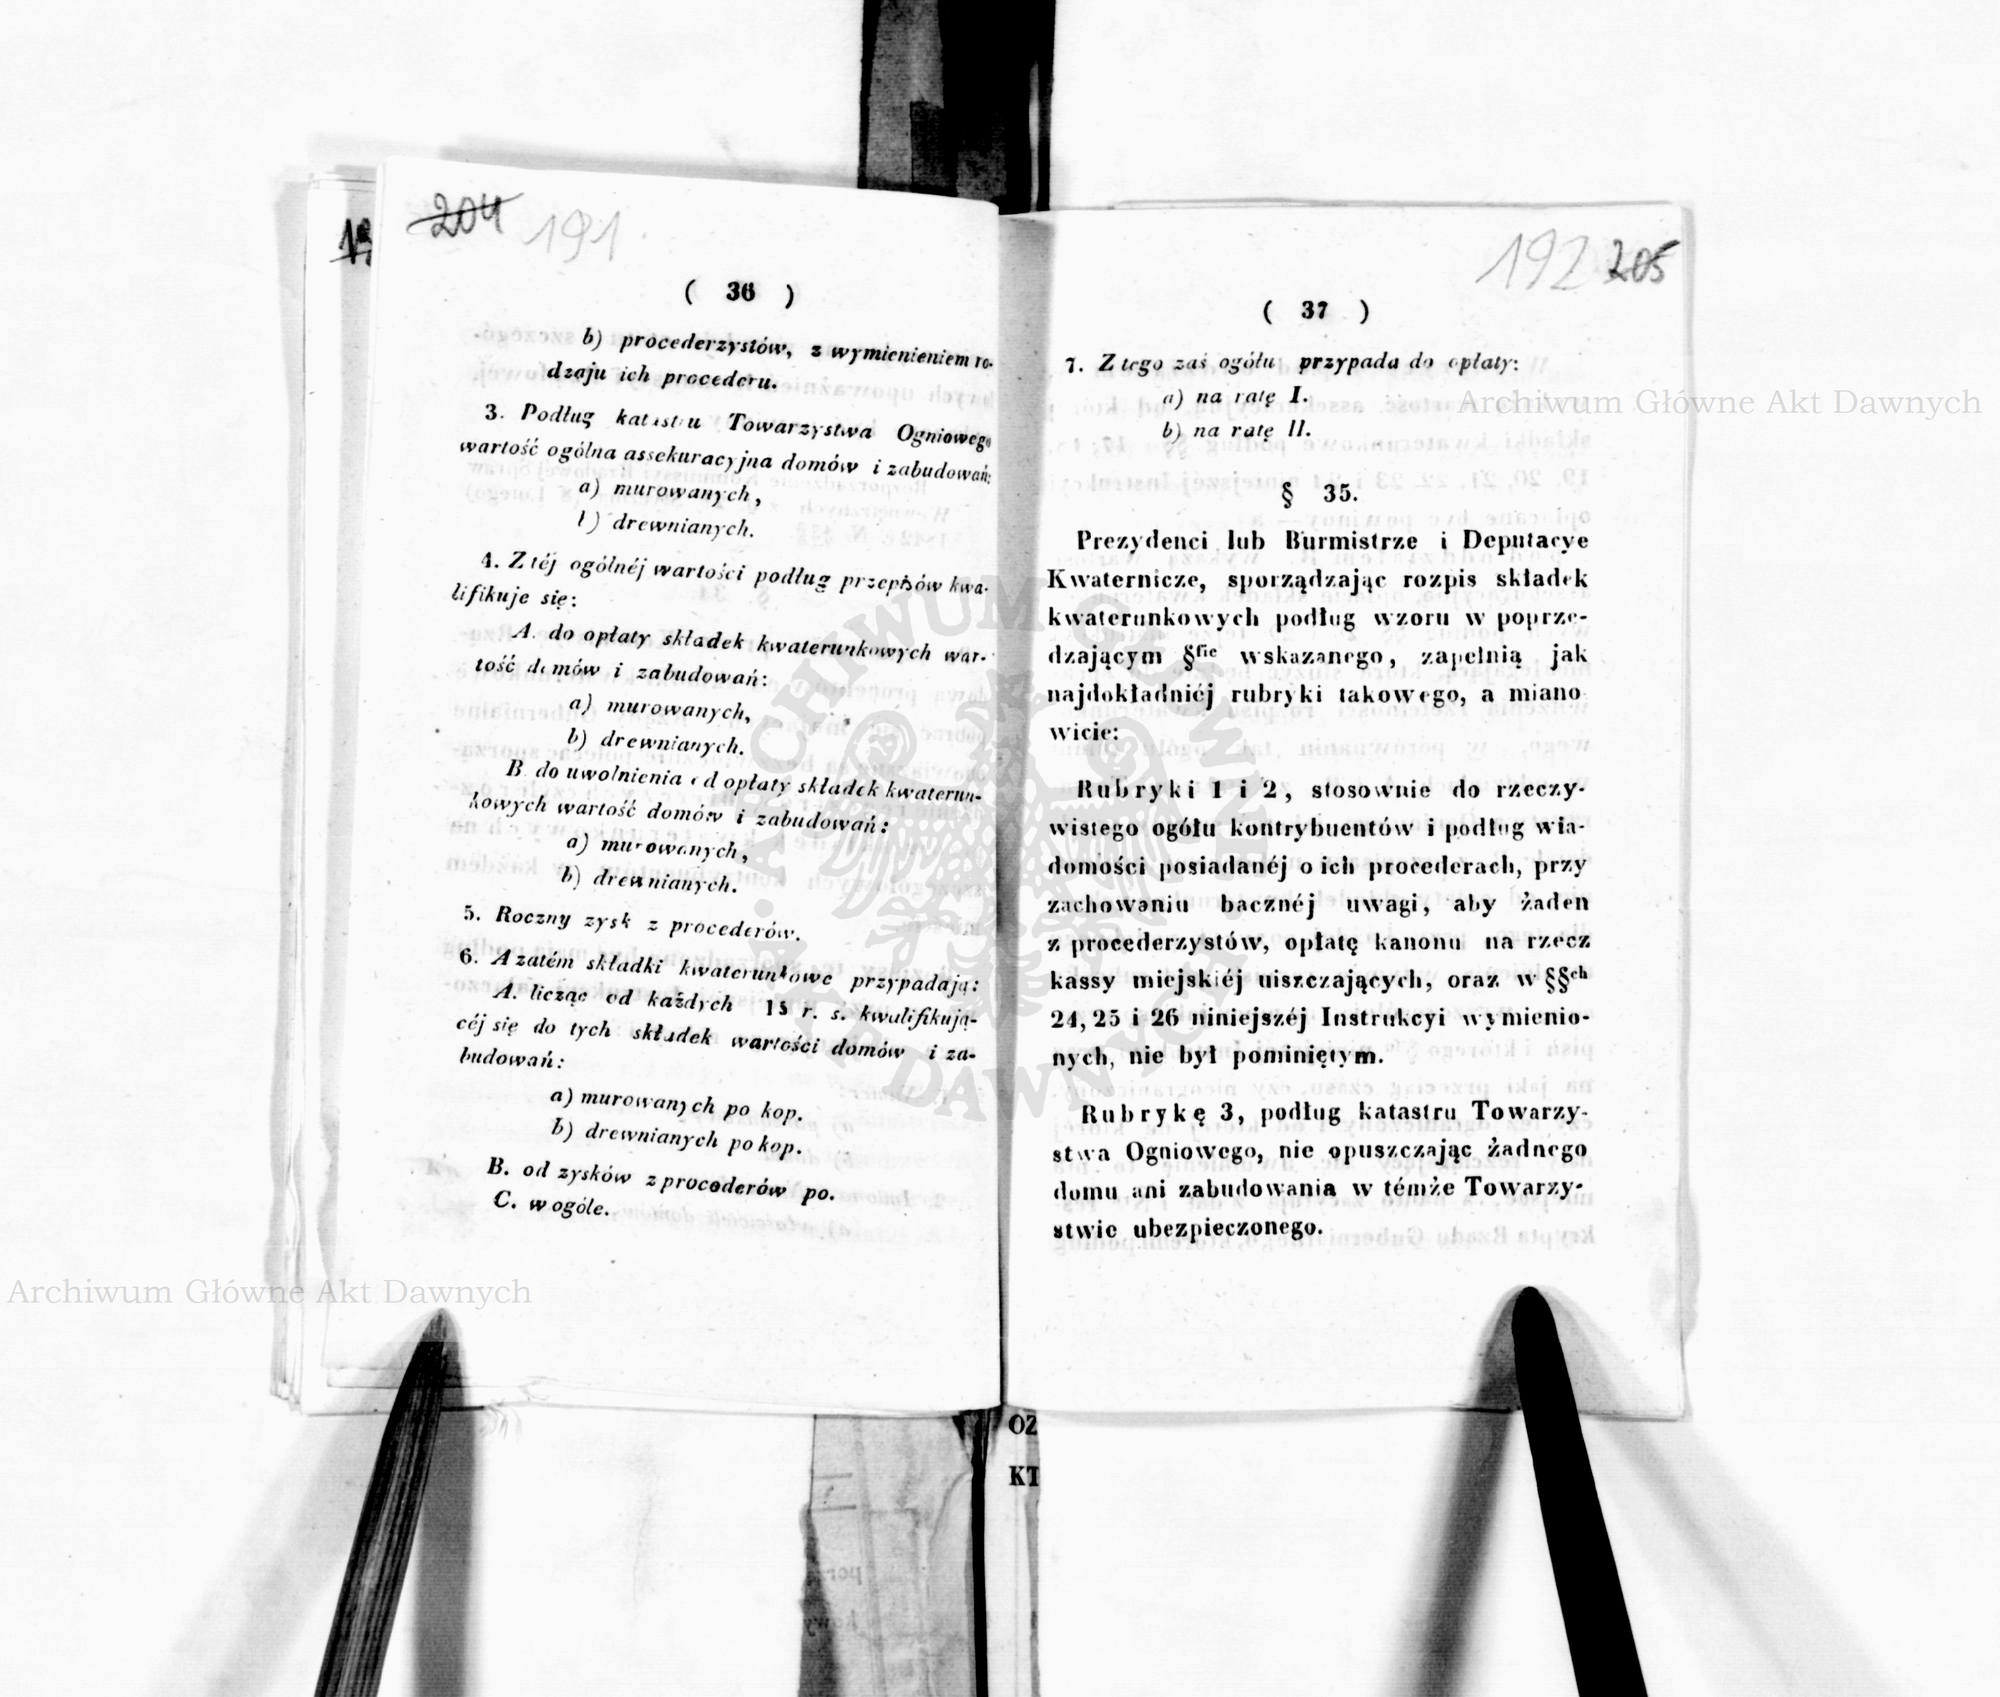 204 191
( 36 )
b) procederzystów, z wymienieniem ro-
dzaju ich procederu.
3. Podług katastru Towarzystwa Ogniowego
wartość ogólna assekuracyjna domów i zabudowań:
a) murowanych,
b) drewnianych.
4. Z téj ogólnéj wartości podług przepisów kwa-
lifikuje się:
A. do opłaty składek kwaterunkowych war-
tość domów i zabudowań:
a) murowanych,
b) drewnianych.
B. do uwolnienia od opłaty składek kwaterun-
kowych wartość domów i zabudowań:
a) murowanych,
b) drewnianych.
5. Roczny zysk z procederów.
6. A zatém składki kwaterunkowe przypadają:
A. licząc od każdych 15 r. s. kwalifikują-
céj się do tych składek wartości domów i za-
budowań:
a) murowanych po kop.
b) drewnianych po kop.
B. od zysków z procederów po.
C. w ogóle.
192 205
( 37 )
7. Z tego zaś ogółu przypada do opłaty:
a) na ratę I.
b) na ratę II.
§ 35.
Prezydenci lub Burmistrze i Deputacye
Kwaternicze, sporządzając rozpis składek
kwaterunkowych podług wzoru w poprze-
dzającym §fie wskazanego, zapełnią jak
najdokładniéj rubryki takowego, a miano
wicie:
Rubryki 1 i 2, stosownie do rzeczy-
wistego ogółu kontrybuentów i podług wia-
domości posiadanéj o ich procederach, przy
zachowaniu bacznéj uwagi, aby żaden
z procederzystów, opłatę kanonu na rzecz
kassy miejskiéj uiszczających, oraz w §§ch
24, 25 i 26 niniejszéj Instrukcyi wymienio-
nych, nie był pominiętym.
Rubrykę 3, podług katastru Towarzy-
stwa Ogniowego, nie opuszczając żadnego
domu ani zabudowania w témże Towarzy-
stwie ubezpieczonego.
OZ
KT
Archiwum Główne Akt Dawnych
Archiwum Główne Akt Dawnych
ARCHIWUM GŁÓWNE AKT DAWNYCH